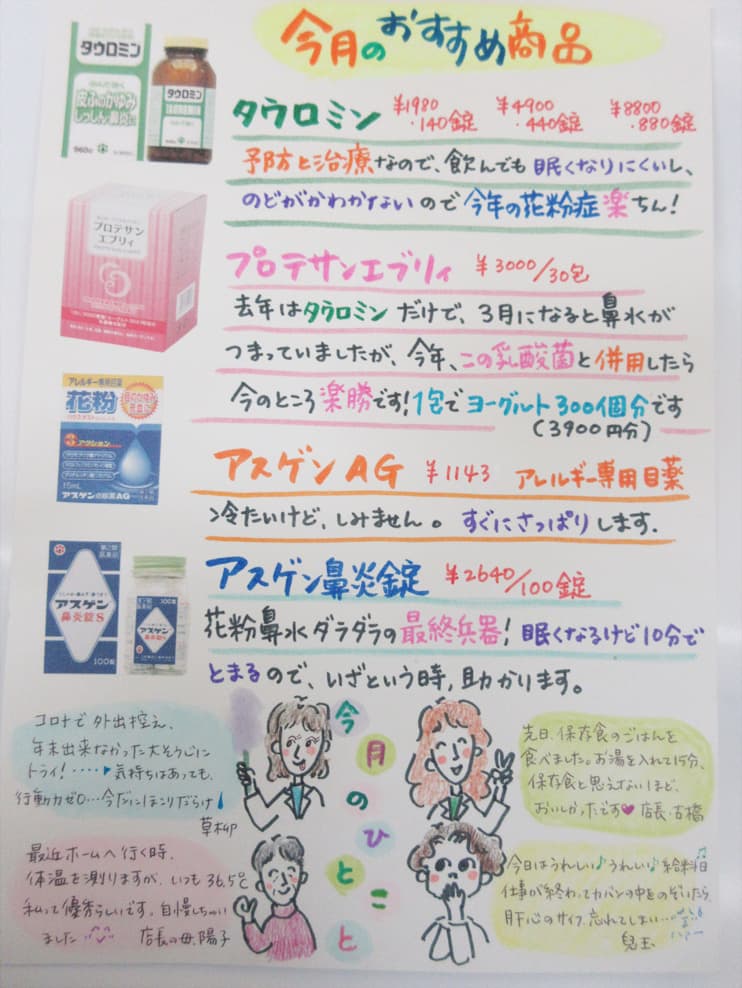 今月のおすすめ商品
タウロミン
タウロミン
皮ふのかゆみ
しっしん・鼻炎に
960錠
タウロミン ¥1980・140錠 ¥4900・440錠 ¥8800・880錠
予防と治療なので、飲んでも眠くなりにくいし、
のどがかわかないので今年の花粉症楽ちん!
プロテサン
エブリィ
プロテサンエブリィ ¥3000/30包
去年はタウロミンだけで、3月になると鼻水が
つまっていましたが、今年、この乳酸菌と併用したら
今のところ楽勝です!1包でヨーグルト300個分です
(3900円分)
アレルギー専用目薬
花粉
3アクション
15mL
アスゲン点眼薬AG
アスゲンAG ¥1143 アレルギー専用目薬
冷たいけど、しみません。すぐにさっぱりします.
第2類
医薬品
アスゲン
鼻炎錠S
100錠
100錠
アスゲン
アスゲン鼻炎錠 ¥2640/100錠
花粉鼻水ダラダラの最終兵器!眠くなるけど10分で
とまるので、いざという時,助かります。
今月のひとこと
コロナで外出控え、
年末出来なかった大そうじに
トライ!・・・・・気持ちはあっても、
行動力ゼロ…今だにほこりだらけ
草柳
先日、保存食のごはんを
食べました。お湯を入れて15分、
保存食と思えないほど、
おいしかったです♥ 店長・古橋
最近ホームへ行く時、
体温を測りますが、いつも36.5℃
私って優秀らしいです。自慢しちゃい
ました 店長の母、陽子
今日はうれしい♪うれしい♪給料日♬
仕事が終わってカバンの中をのぞいたら、
肝心のサイフ、忘れてしまい…
児玉